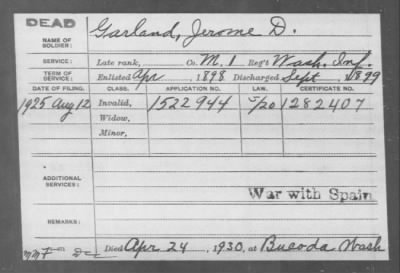 DEAD
NAME OF SOLDIER: Garland, Jerome D.
SERVICE: Late rank, Co. M. 1 Reg't Wash. Inf.
TERM OF SERVICE: Enlisted Apr , 1898 Discharged Sept , 1899
DATE OF FILING. CLASS. APPLICATION NO. LAW. CERTIFICATE NO.
1925 Aug 12 Invalid, 1522944 5/20 1282407
Widow,
Minor,
ADDITIONAL SERVICES:
War with Spain
REMARKS:
Died Apr 24 , 1930, at Wash